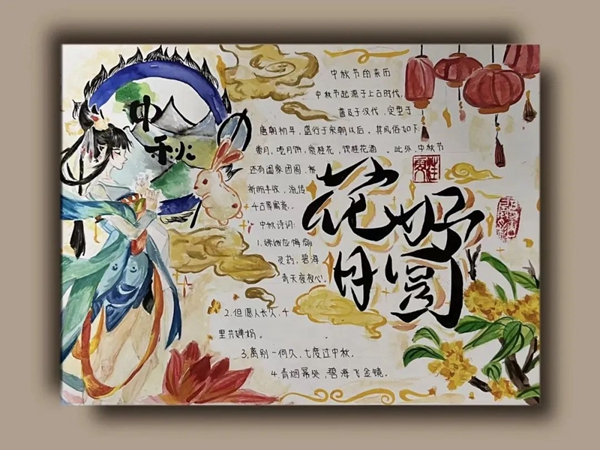 中秋
中秋节的来历
中秋节起源于上古时代,
普及于汉代,定型于
唐朝初年,盛行于宋朝以后,其风俗如下
赏月,吃月饼,赏桂花,饮桂花酒,此外,中秋节
还有阖家团圆,等
祈盼丰收,
古等寓意。
中秋诗词:
1.嫦娥应悔偷
灵药,碧海
青天夜夜心。
2.但愿人长久,千
里共婵娟。
3.离别一何久,七度过中秋。
4.青烟幂处,碧海飞金镜。
花好
月圆